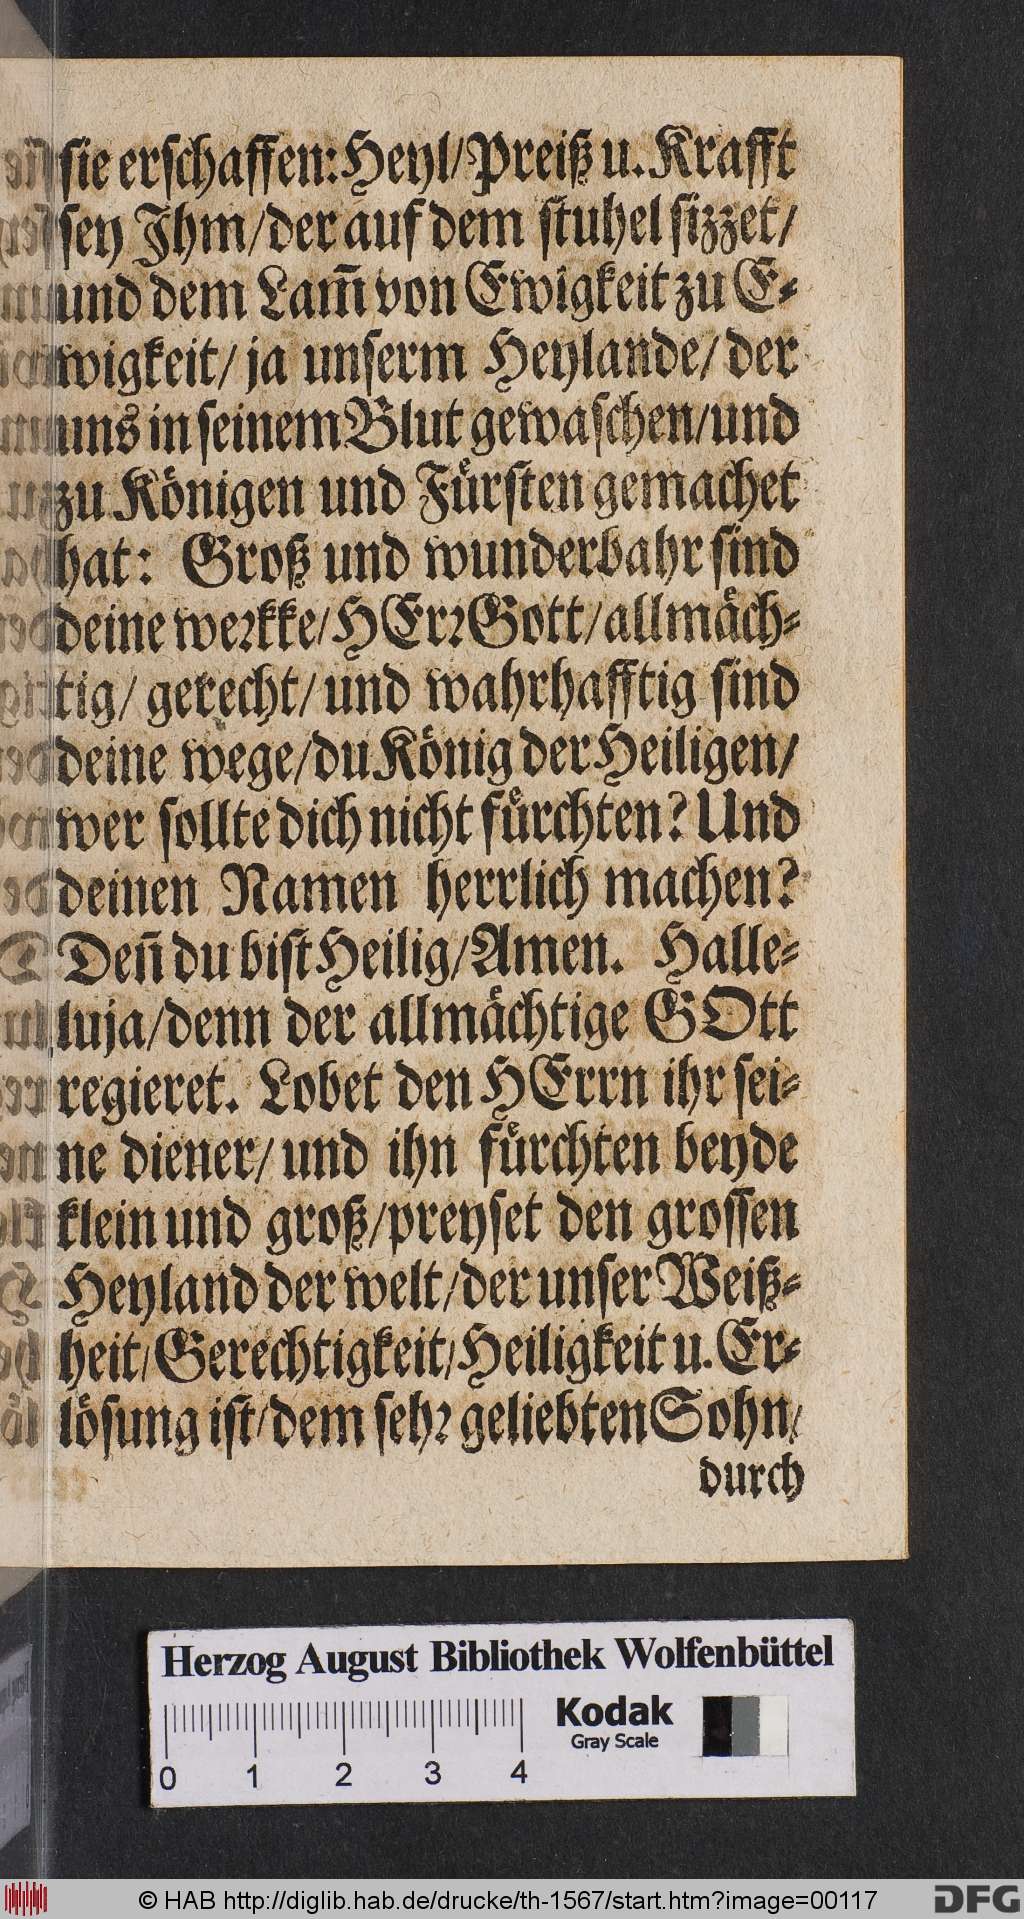 sie erschaffen: Heyl/Preiß u. Krafft
sey Jhm/der auf dem stuhel sizzet/
und dem Lam̃ von Ewigkeit zu E-
wigkeit/ ja unserm Heylande/ der
uns in seinem Blut gewaschen/und
zu Koͤnigen und Fuͤrsten gemachet
hat: Groß und wunderbahr sind
deine weꝛkke/HErꝛ Gott/allmaͤch-
tig/ gerecht/und wahrhafftig sind
deine wege/du Koͤnig der Heiligen/
wer sollte dich nicht fuͤrchten? Und
deinen Namen herrlich machen?
Deñ du bist Heilig/Amen. Halle-
luja/denn der allmaͤchtige GOtt
regieret. Lobet den HErrn ihr sei-
ne diener/und ihn fuͤrchten beyde
klein und groß/preyset den grossen
Heyland der welt/der unser Weiß-
heit/Gerechtigkeit/Heiligkeit u. Er-
loͤsung ist/dem sehꝛ geliebten Sohn/
durch
Herzog August Bibliothek Wolfenbüttel
Kodak
Gray Scale
0 1 2 3 4
© HAB http://diglib.hab.de/drucke/th-1567/start.htm?image=00117
DFG